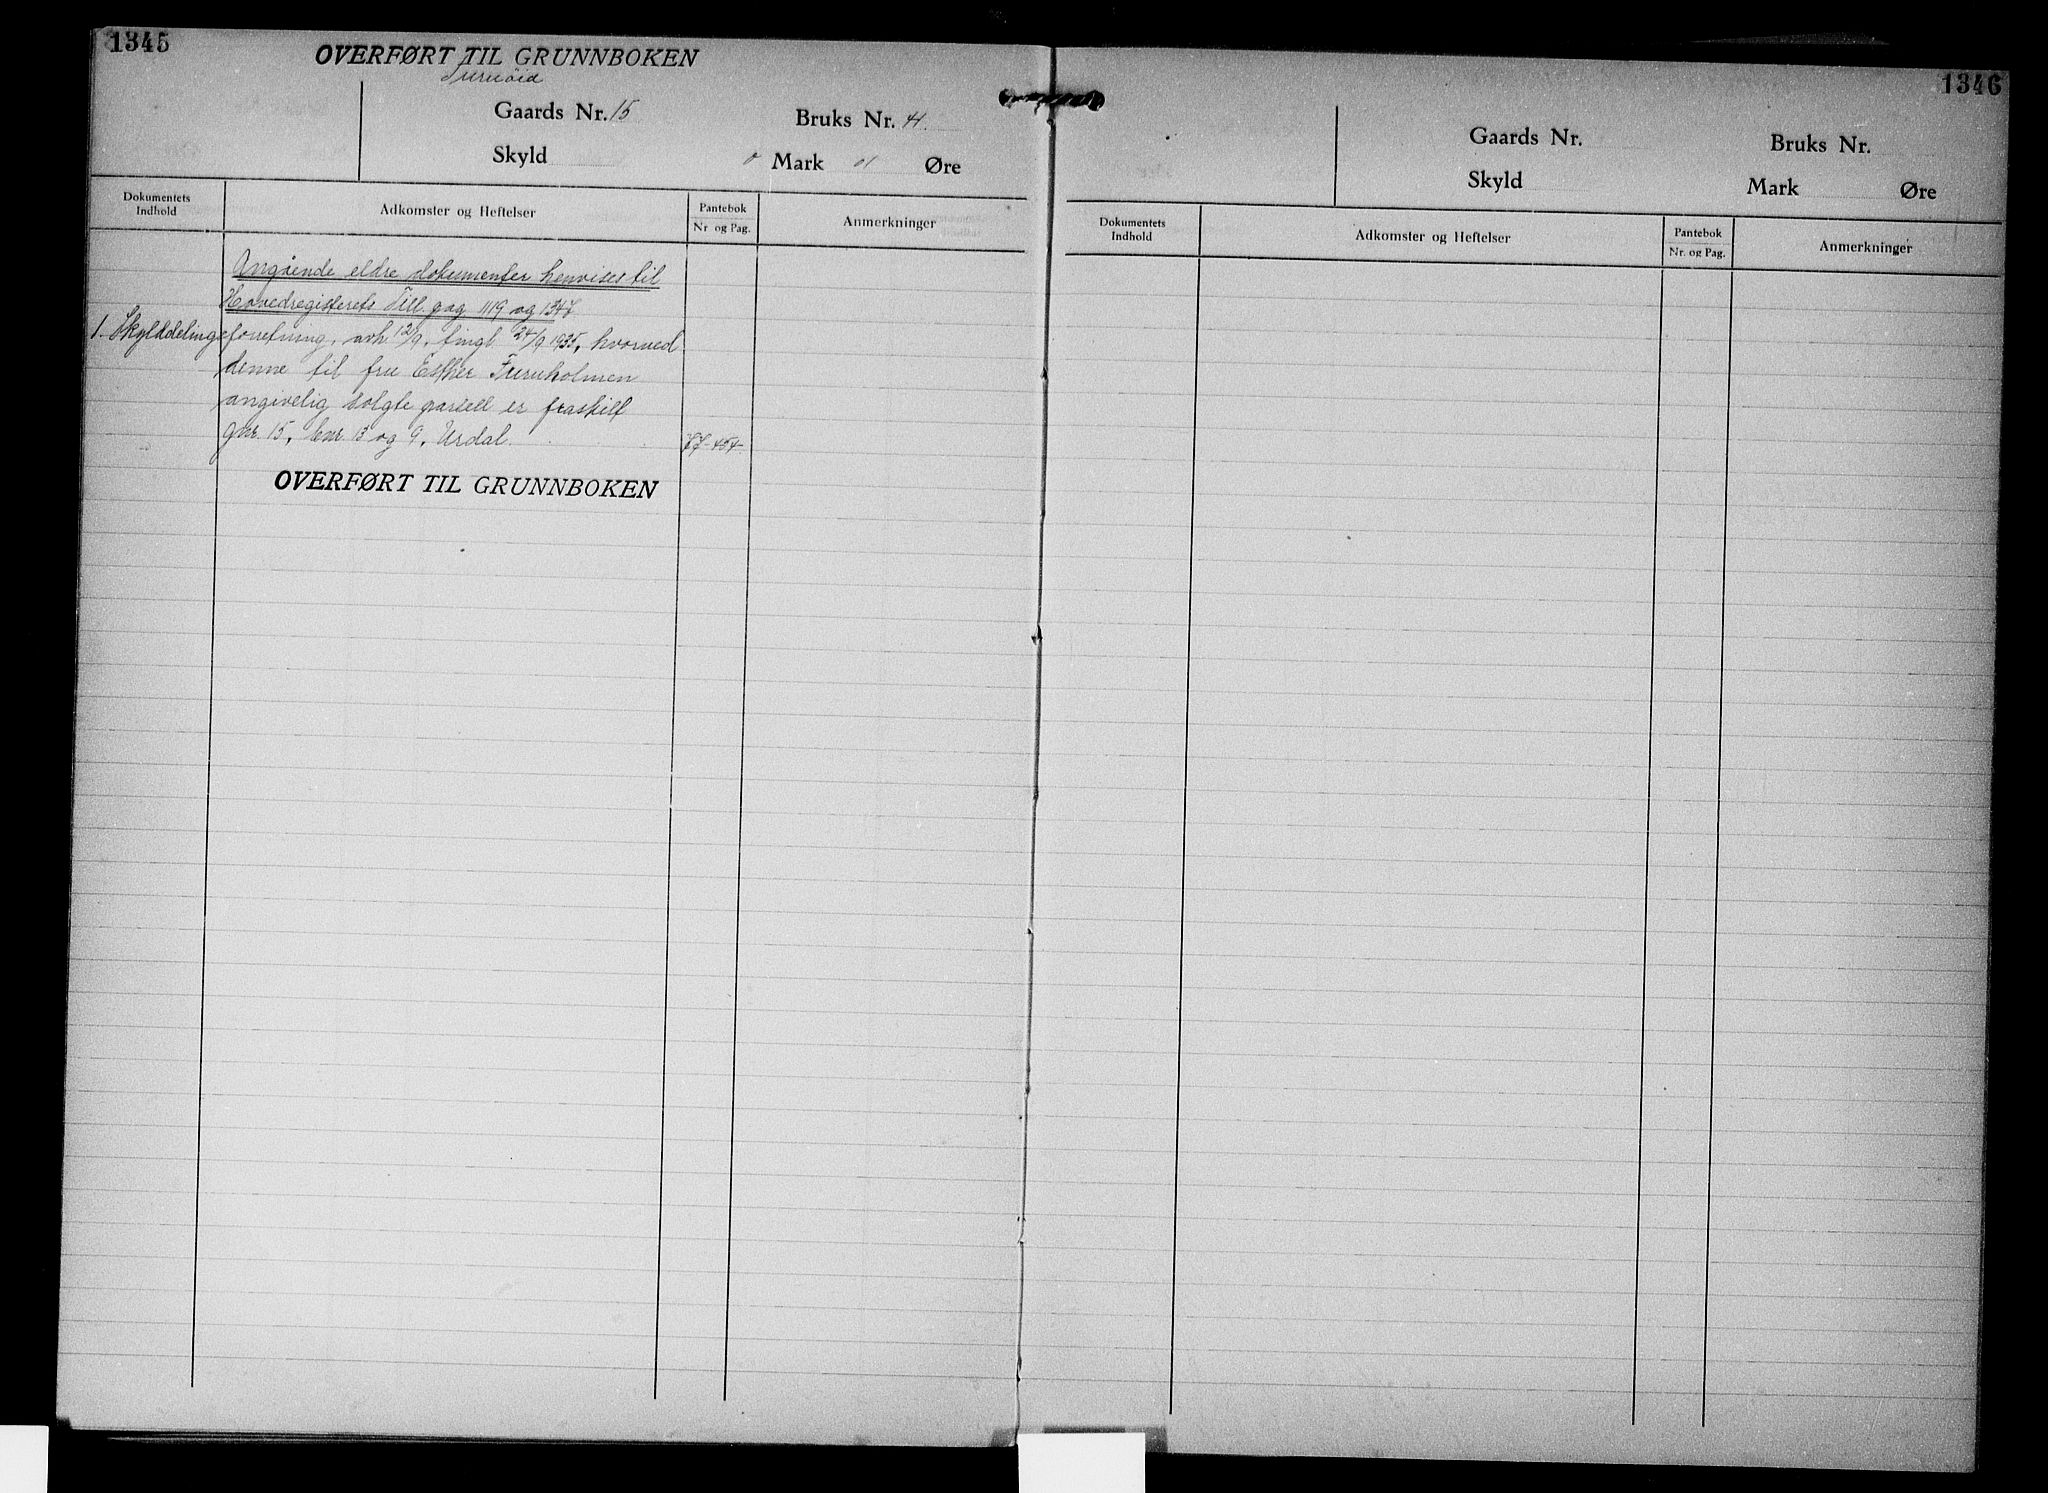 1345
OVERFØRT TIL GRUNNBOKEN
Gaards Nr. 15 Bruks Nr. 41.
Skyld 0 Mark 01 Øre
Dokumentets Indhold
Adkomster og Heftelser
Pantebok
Nr og Pag.
Anmerkninger
Angående eldre dokumenter henvises til
Hovedregisterets Till. pag 1119 og 1347
1. Skylddelingsforretning, avh. 12/9, tingl. 24/9 1935, hvorved
denne til fru Esther Furuholmen
angivelig solgte parsell er fraskilt
gnr. 15, bnr 13 og 9, Urdal. 77-454
OVERFØRT TIL GRUNNBOKEN
1346
Gaards Nr. Bruks Nr.
Skyld Mark Øre
Dokumentets Indhold
Adkomster og Heftelser
Pantebok
Nr. og Pag.
Anmerkninger